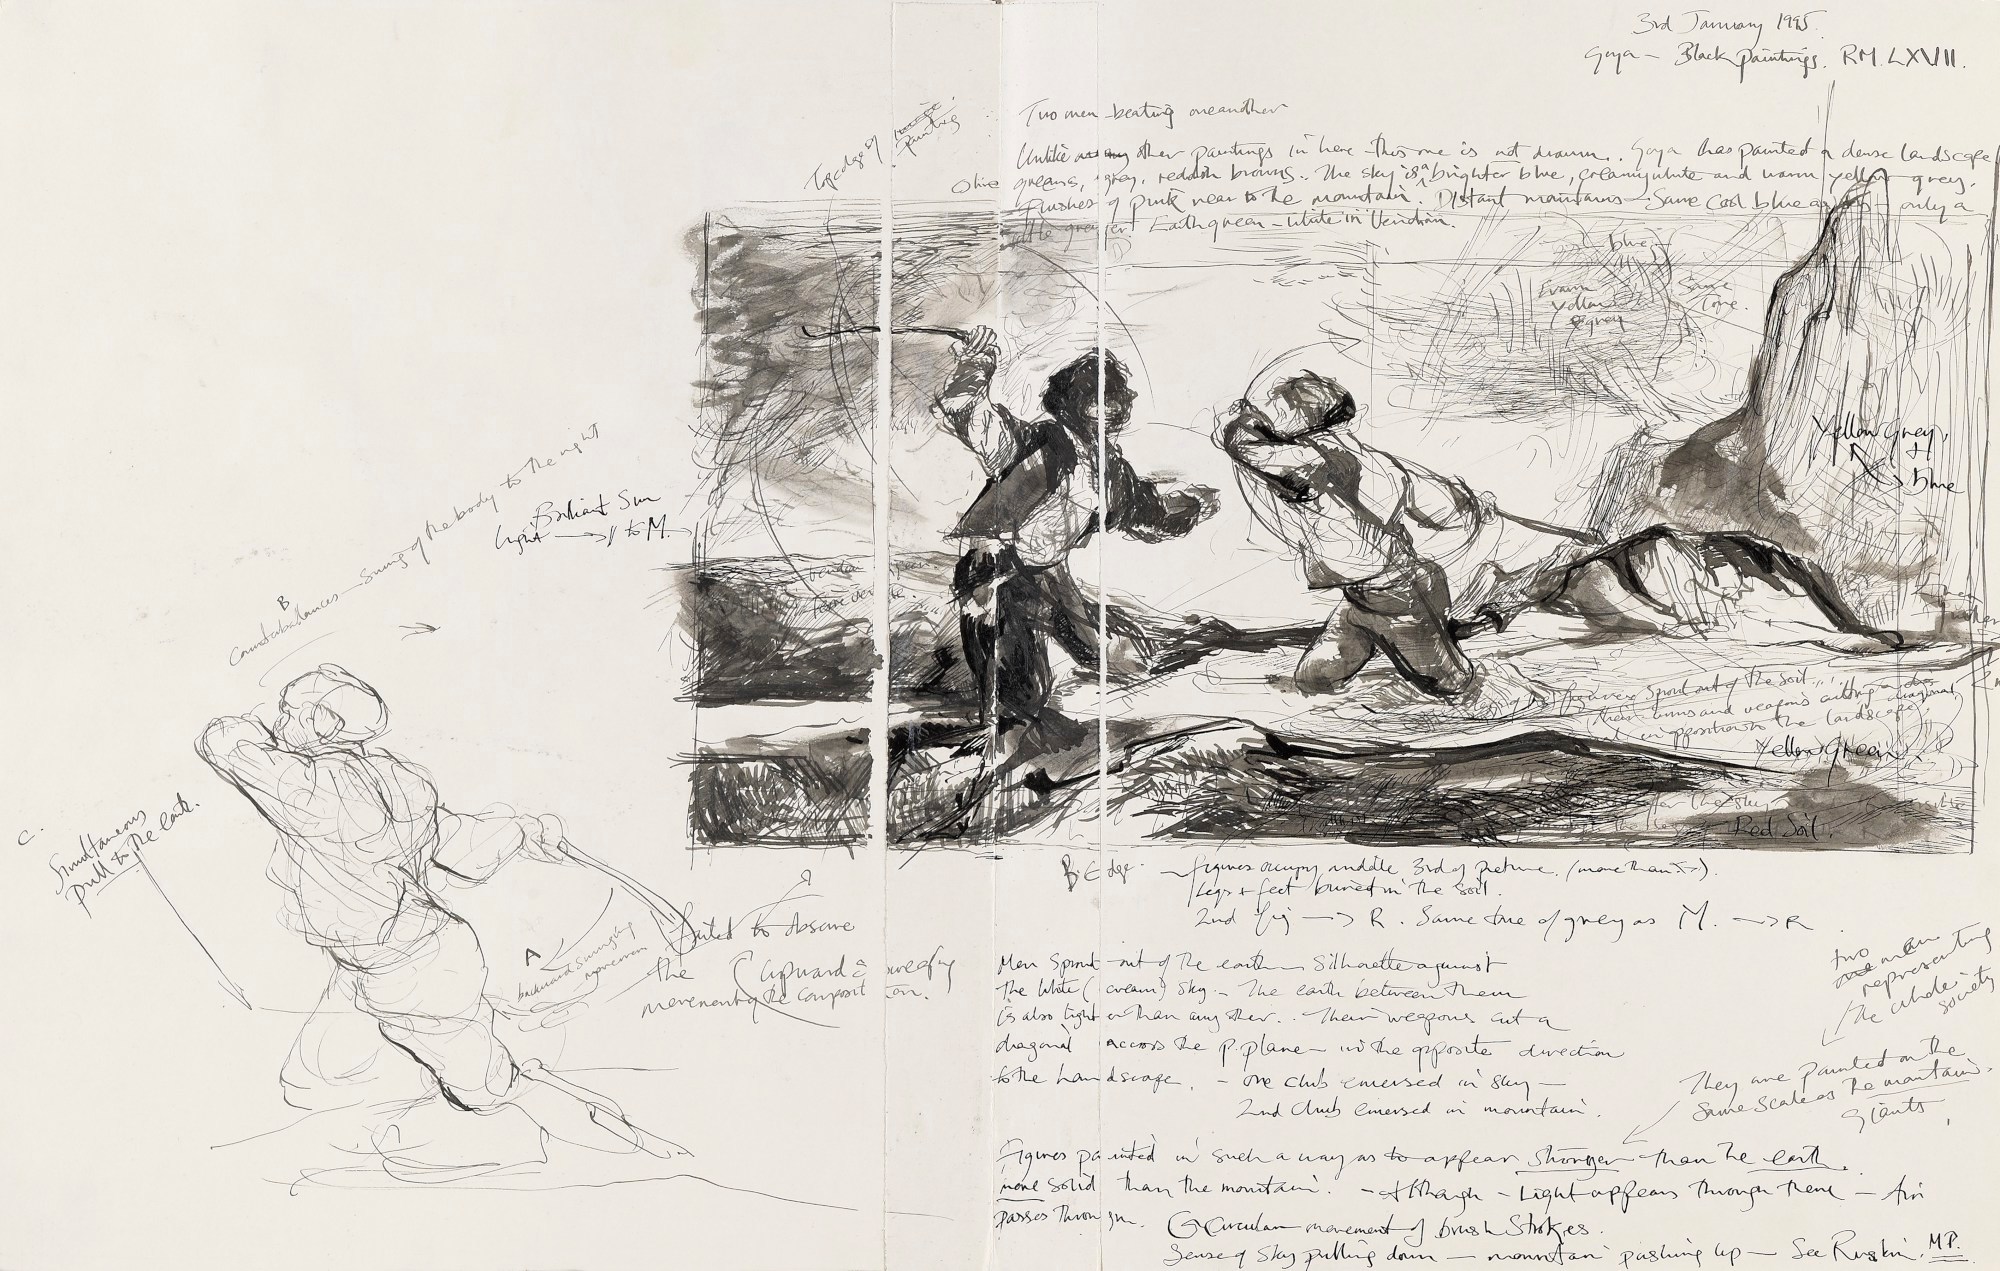 3rd January 1995.
Goya - Black Paintings. RM. LXVII.
Two men beating oneanother
Top edge of
Painting
Unlike other paintings in here this one is not drawn. Goya has painted a dense landscape
Olive greens, grey, reddish browns. The sky is a brighter blue, creamy white and warm yellow grey.
flushes of pink near to the mountain. Distant mountains - Same Cool blue as - only a
little greyer Earth green - white in Viridian.
blue
warm
yellow
grey
Same
tone.
Yellow Grey,
+
blue
Brilliant Sun
Light → // to M.
B
Counterbalances - Swing of the body to the right
C.
Simultaneous
pull to the earth.
A
backward swinging
movement
failed to observe
the upward curving
movement of the composition.
figures sprout out of the soil
their arms and weapons cutting a diagonal
in opposition to the landscape
Yellow green
Red Soil.
B. Edge - figures occupy middle 3rd of picture. (more than
legs + feet buried in the soil.
2nd fig → R. Same tone of grey as M. → R
Men Sprout out of the earth - Silhouette against
the White (cream) Sky - The earth between them
is also lighter than any other.. Their weapons cut a
diagonal across the p. plane - in the opposite direction
to the landscape. - one club emersed in sky -
2nd Club emersed in mountain.
two men
representing
the whole
society
They are painted on the
Same Scale as The mountain.
Giants
Figures painted in such a way as to appear Stronger than the earth.
more Solid than the mountain. - Although - Light appears through them - Air
passes through. Circular movement of brush Strokes.
Sense of Sky pulling down - mountain pushing up - See Ruskin. MP.